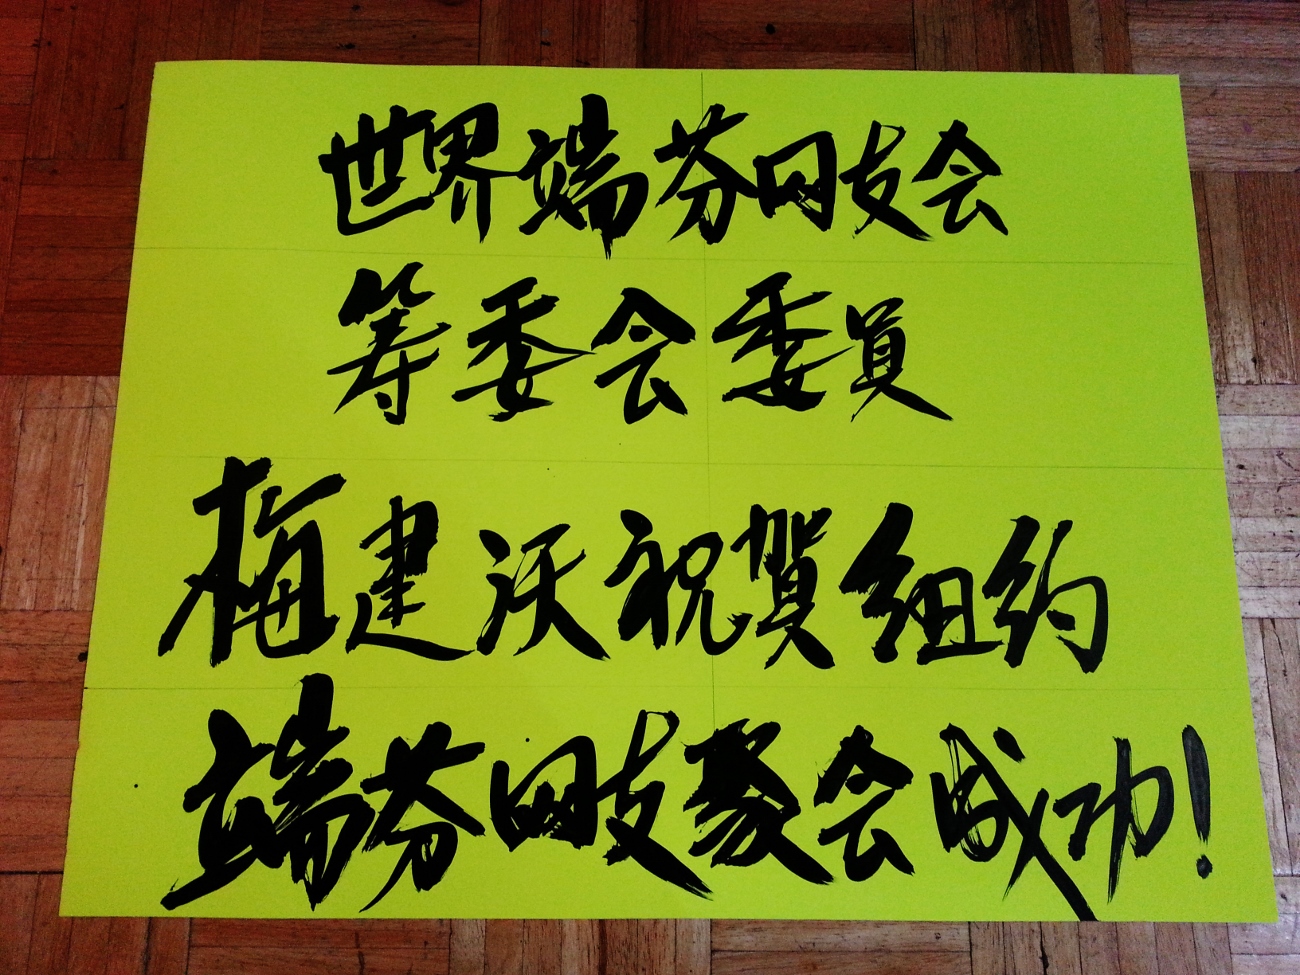 世界端芬网友会
筹委会委员
梅建沃祝贺纽约
端芬网友聚会成功!